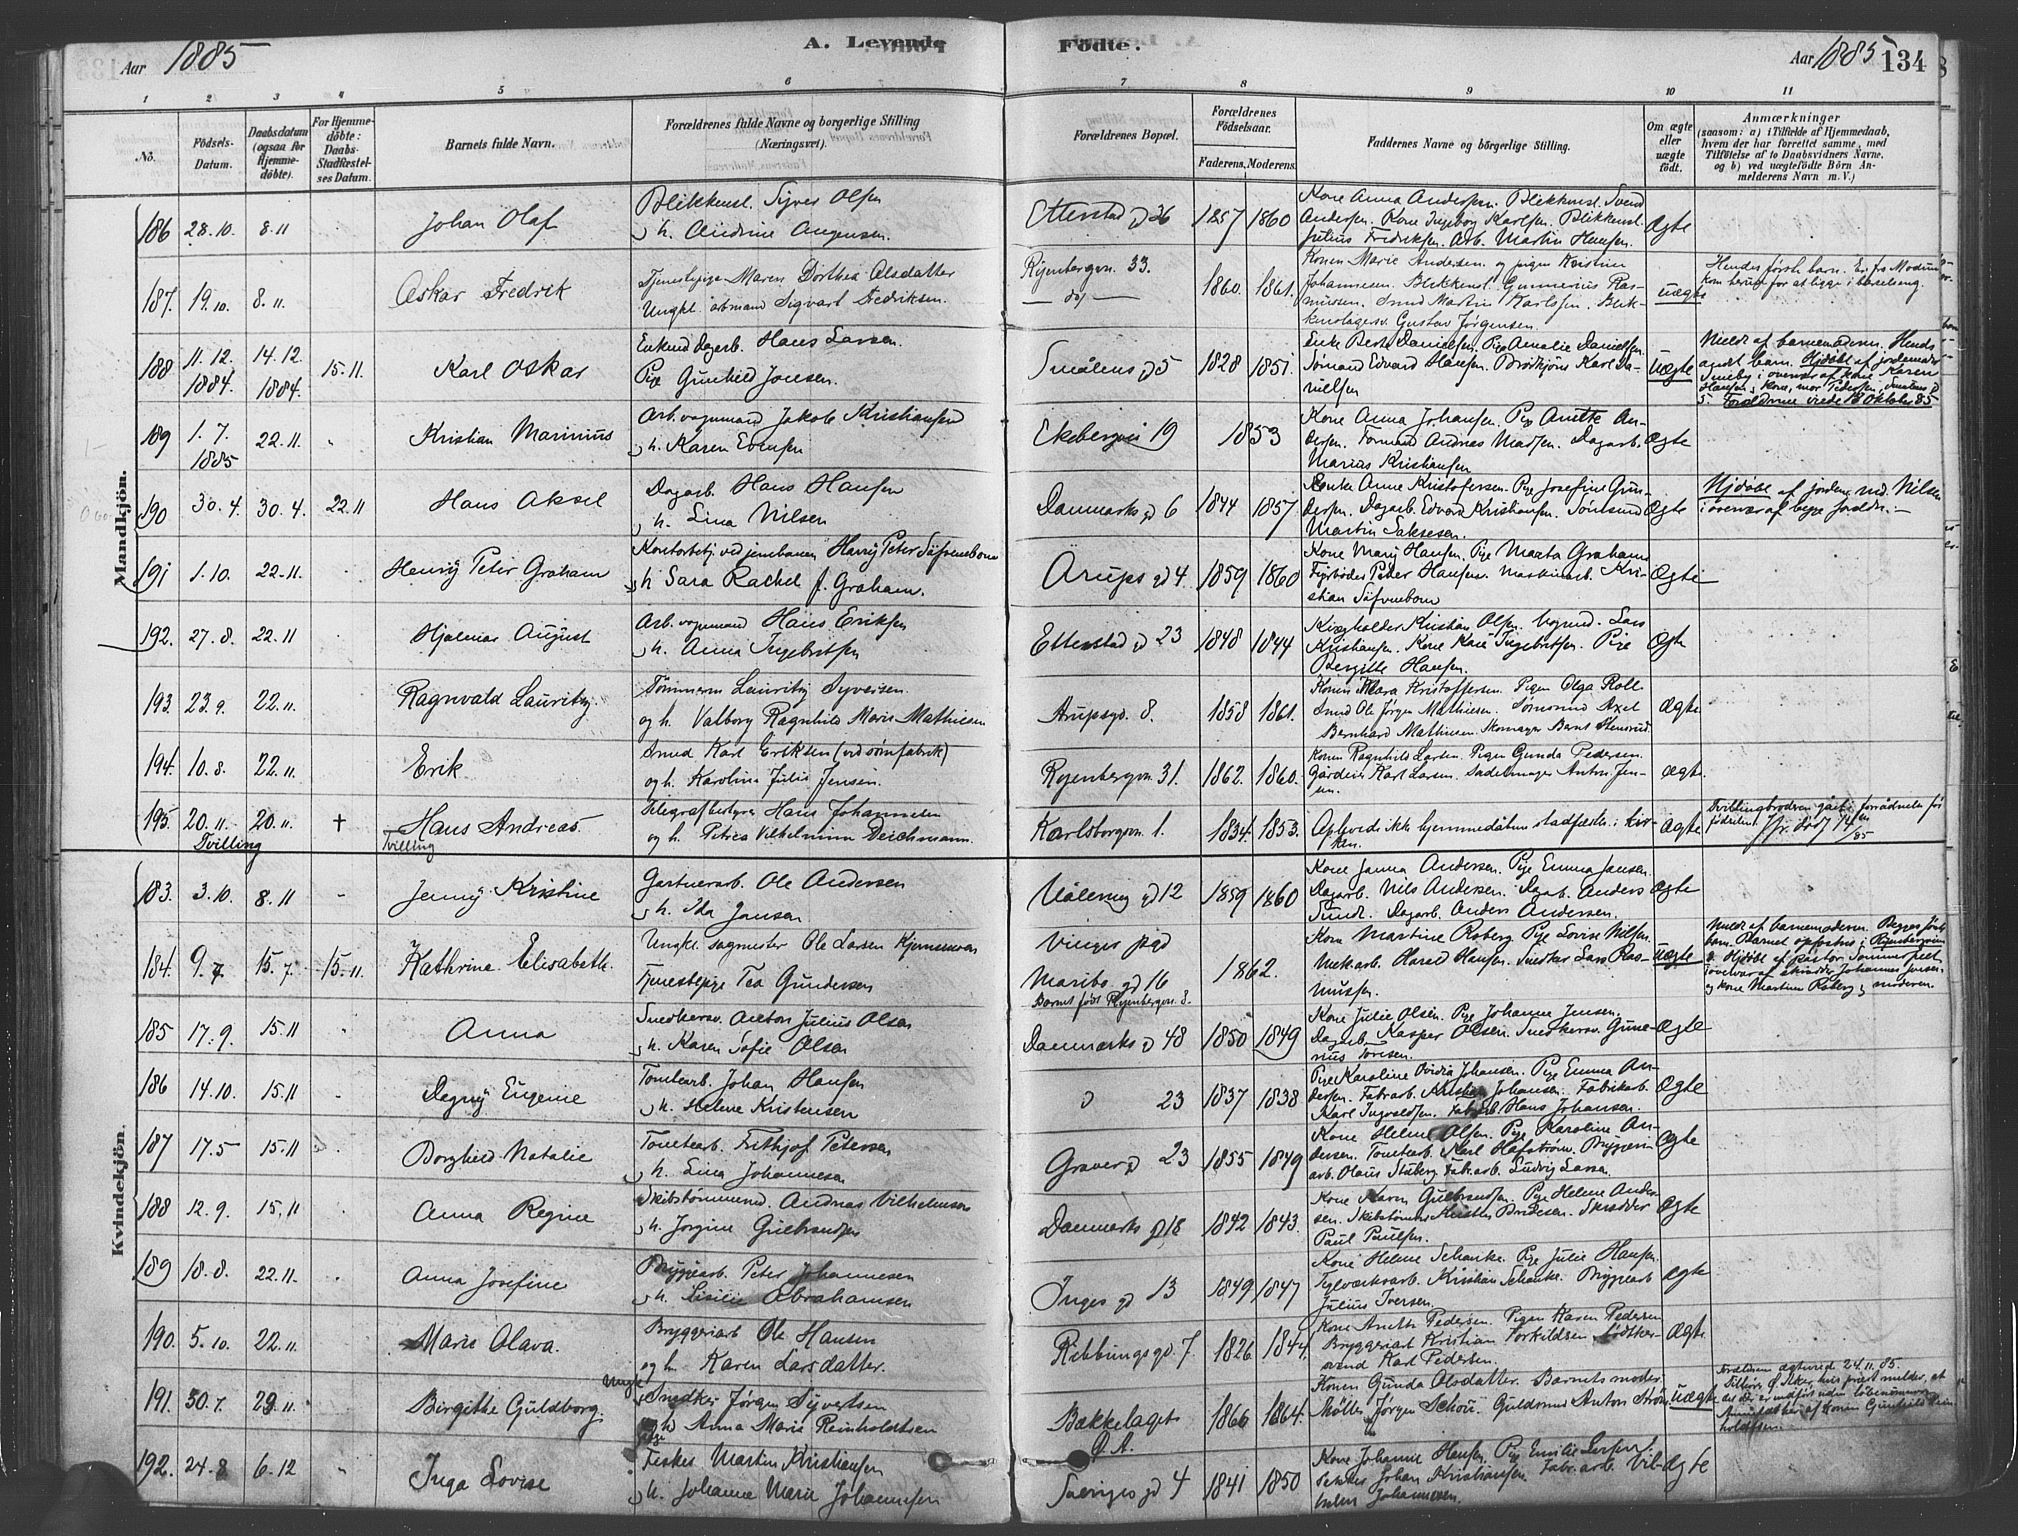 Aar 1885 A. Levende Födte. Aar 1885 134
1 2 3 4 5 6 7 8 9 10 11
No. Födsels-Datum. Daabsdatum (ogsaa for Hjemme-döbte). For Hjemme-döbte: Daabs-Stadfæstel-ses Datum. Barnets fulde Navn. Forældrenes fulde Navne og borgerlige Stilling (Næringsvei). Forældrenes Bopæl. Forældrenes Födselsaar. Faderens. Moderens. Faddernes Navne og börgerlige Stilling. Om ægte eller uægte födt. Anmærkninger (saasom: a) i Tilfælde af Hjemmedaab, hvem der har forrettet samme, med Tilföielse af to Daabsvidners Navne, og b) ved uægtefödte Börn An-melderens Navn m. V.)
Mandkjön.
186 28.10. 8.11 Johan Olaf Blikkensl. Syver Olsen
Etterstad gd 26 1857 1860 Kone Anna Andersen. Blikkensl. Svend
Andersen. Kone Ingeborg Karlsen. Blikkensl. Ægte
Julius Fredriksen. Arb. Martin Hansen.
187. 19.10. 8.11. Oskar Fredrik Tjenestepige Maren Dorthea Olsdatter
Ungkl. arbmand Sigvart Fredriksen.
Ryenbergvn. 33. 1860. 1861. Konen Marie Andersen og pigen Kristine
Johannesen. Blikkensl. Gunnerius Ras-
musen. Smed Martin Karlsen. Blik-
kenslagersv. Gustav Jörgensen. uægte
Hendes förste barn. Er fra Modum
kom herud for at ligge i barselseng.
188 11.12. 1884. 14.12. 1884. 15.11. Karl Oskar Enkemd dagarb. Hans Larsen
Pige Gunhild Jonsen.
Smålens gd 5 1828 1851. Enke Berte Danielsen. Pige Amalie Danielsen.
Sömand Edvard Hansen. Karl Da-
nielsen Uægte
Meldt af barnemoderen. Hendes
andet barn. Hjdöbt af jordemoder
i overvær af kone Karen
Hansen, Pedersen, Smålens gd
5. Forældrene viede 18 Oktober 85
189 1.7. 1885 22.11. Kristian Marinius Arb. vognmand Jakob Kristiansen
h. Karen Evensen
Ekebergvei 19 1853 Kone Anna Johansen. Pige Anette An-
dersen. Formand Andreas Madsen. Dagarb.
Marius Kristiansen Ægte
190 30.4. 30.4. 22.11 Hans Aksel Dagarb. Hans Hansen
h. Lina Nilsen
Danmarks gd 6 1844 1857 Enke Anne Kristofersen. Pige Josefine Gun-
dersen. Dagarb. Edvard Kristiansen.
Martin Ægte
Hjdöbt af jordem. Nilsen
i overvær af begge foreldre.
191 1.10. 22.11. Henrij Peter Graham Kontorbetj. ved jernbanen Harrij Peter Söfvenbom
h. Sara Rachel f. Graham.
Årups gd 4. 1859 1860 Kone Marij Hansen. Pige Marta Graham
Fyrböder Peter Hansen. Maskinarb. Kri-
stian Söfvenbom Ægte
192. 27.8. 22.11 Hjalmar August Arb. vognmand Hans Eriksen
h. Anna Ingebretsen
Etterstad gd 23 1848 1844 Kristian Olsen. Vognmd. Lars
Kristiansen. Kone Kari Ingebretsen. Pige
Bergitte Hansen. Ægte
193. 23.9. 22.11. Ragnvald Lauritz. Tömmerm. Lauritz Syversen.
og h. Valborg Ragnhild Marie Mathiesen
Arupsgd. 8. 1858 1861. Konen Mara Kristoffersen. Pigen Olga Roll
Smed Ole Jörgen Mathiesen. Sömand Axel
Bernhard Mathiesen. Skomager Bernt Stensrud. Ægte
194. 10.8. 22.11. Erik Smed Karl Eriksen (ved sömfabrik)
og h. Karoline Julie Jensen.
Ryenbergvn. 31. 1862. 1860. Konen Ragnhild Larsen. Pigen Gunda Pedersen.
Gårdeier Karl Larsen. Sadelmager Anton Jen-
sen. ægte
195. 20.11. Tvilling 20.11. † Hans Andreas. Tvilling Telegrafbestyrer Hans Johannesen
og h. Petrea Vilhelmine Deichmann.
Karlsborgvn. 1. 1834. 1853. Oplevede ikke hjemmedåbens stadfæst. i kir-
ken. Ægte
Tvillingbroderen gået i forrådnelse för
födselen. Jfr. död 14/11 85
Kvindekjön.
183. 3.10. 8.11 Jennij Kristine Gartnerarb. Ole Andersen
h. Ida Jansen
Vålereng gd 12 1859 1860 Kone Janna Andersen. Pige Emma Jansen.
Dagarb. Nils Andersen. Dagarb. Anders
Sundt. Dagarb. Anders Andersen. Ægte
184. 9.7. 15.7 15.11. Kathrine Elisabeth. Ungkl. sagmester Ole Larsen
Tjenestepige Tea Gundersen
Vinger pgd
Maribo gd 16
Barnet födt Ryenbergvn. 8. 1862. Kone Martine Roberg. Pige Lovise Nilsen.
Mek.arb. Harald Hansen. Snedker Lars Ras-
mussen. Uægte
Meldt af barnemoderen. Begges förste
barn. Barnet opfostres i Ryenbergveien
8. Hjdöbt af pastor Sommerfelt
i overvær af Johannes Jensen
og kone Martine Roberg, moderen.
185 17.9. 15.11 Anna Snedkersv. Anton Julius Olsen
h. Karen Sofie Olsen
Danmarks gd 48 1850 1849 Kone Julie Olsen. Pige Johanne Jensen.
Dagarb. Kasper Olsen. Snedkersv. Gune-
rius Ægte
186 14.10. 15.11 Dagnij Eugenie Tomtearb. Johan Hansen
h. Helene Kristensen
23 1837 1838 Pige Karoline Ovidia Johansen. Pige Emma An-
dersen. Fabrarb. Kristian Johansen. Fabrikarb.
Karl Ingvaldsen. Fabrarb. Hans Johansen. Ægte
187 17.5 15.11 Borghild Natalie Tomtearb. Frithjof Petersen
h. Lina Johannesen
Graver gd 23 1855 1849 Kone Helene Olsen. Pige Karoline An-
dersen. Tomtearb. Karl Hafström. Bryggeri-
arb. Hans Fabrarb. Ludvig Larsen. Ægte
188 12.9. 15.11 Anna Regine Skibstömmermd. Andreas Vilhelmsen
h. Jörgine Gulbrandsen
Danmarks gd 18 1842 1843. Kone Karen Gulbrandsen. Pige Helene Ander-
sen. Skibstömrer Skrædder
Paul Paulsen. Ægte
189 18.8. 22.11. Anna Josefine Bryggearb. Peter Johannesen
h. Abrahamsen
Inges gd 13 1849 1847 Kone Helene Schanke. Pige Julie Hansen.
Teglværksarb. Kristian Schanke. Bryggearb.
Julius Iversen. Ægte
190. 5.10. 22.11. Marie Olava. Bryggeriarb Ole Hansen
og h. Karen Larsdatter.
Ribbungsgd. 7 1826 1844. Kone Anette Pedersen. Pigen Karen Pedersen
Bryggeriarb Kristian Torkildsen. Bödtker-
svend Karl Pedersen. Ægte
191. 30.7. 29.11. Birgithe Guldborg. Ungk. Snedker Jörgen Syvertsen
Pige Anna Marie Reinholdtsen
Bækkelaget
Ø. A. 1866 1864. Konen Gunda Olsdatter. Barnets moder
Möller Jörgen Schou. Guldsmed Anton Ström uægte
Forældrene ægteviede 24.11.85.
Tilhörer Ø. Aker, hvis prest melder, at
det der er indfört uden löbenummer
Anmeldelse af Konen Gunhild Rein-
holdtsen.
192. 24.8 6.12 Inga Lovise Fisker Martin Kristiansen
h. Johanne Marie Johannesen
Sveriges gd 4 1841 1850 Kone Johanne Hansen. Pige Emilie
Johan Kristiansen. Fabr.arb. Vil-
helm Johannesen. Ægte